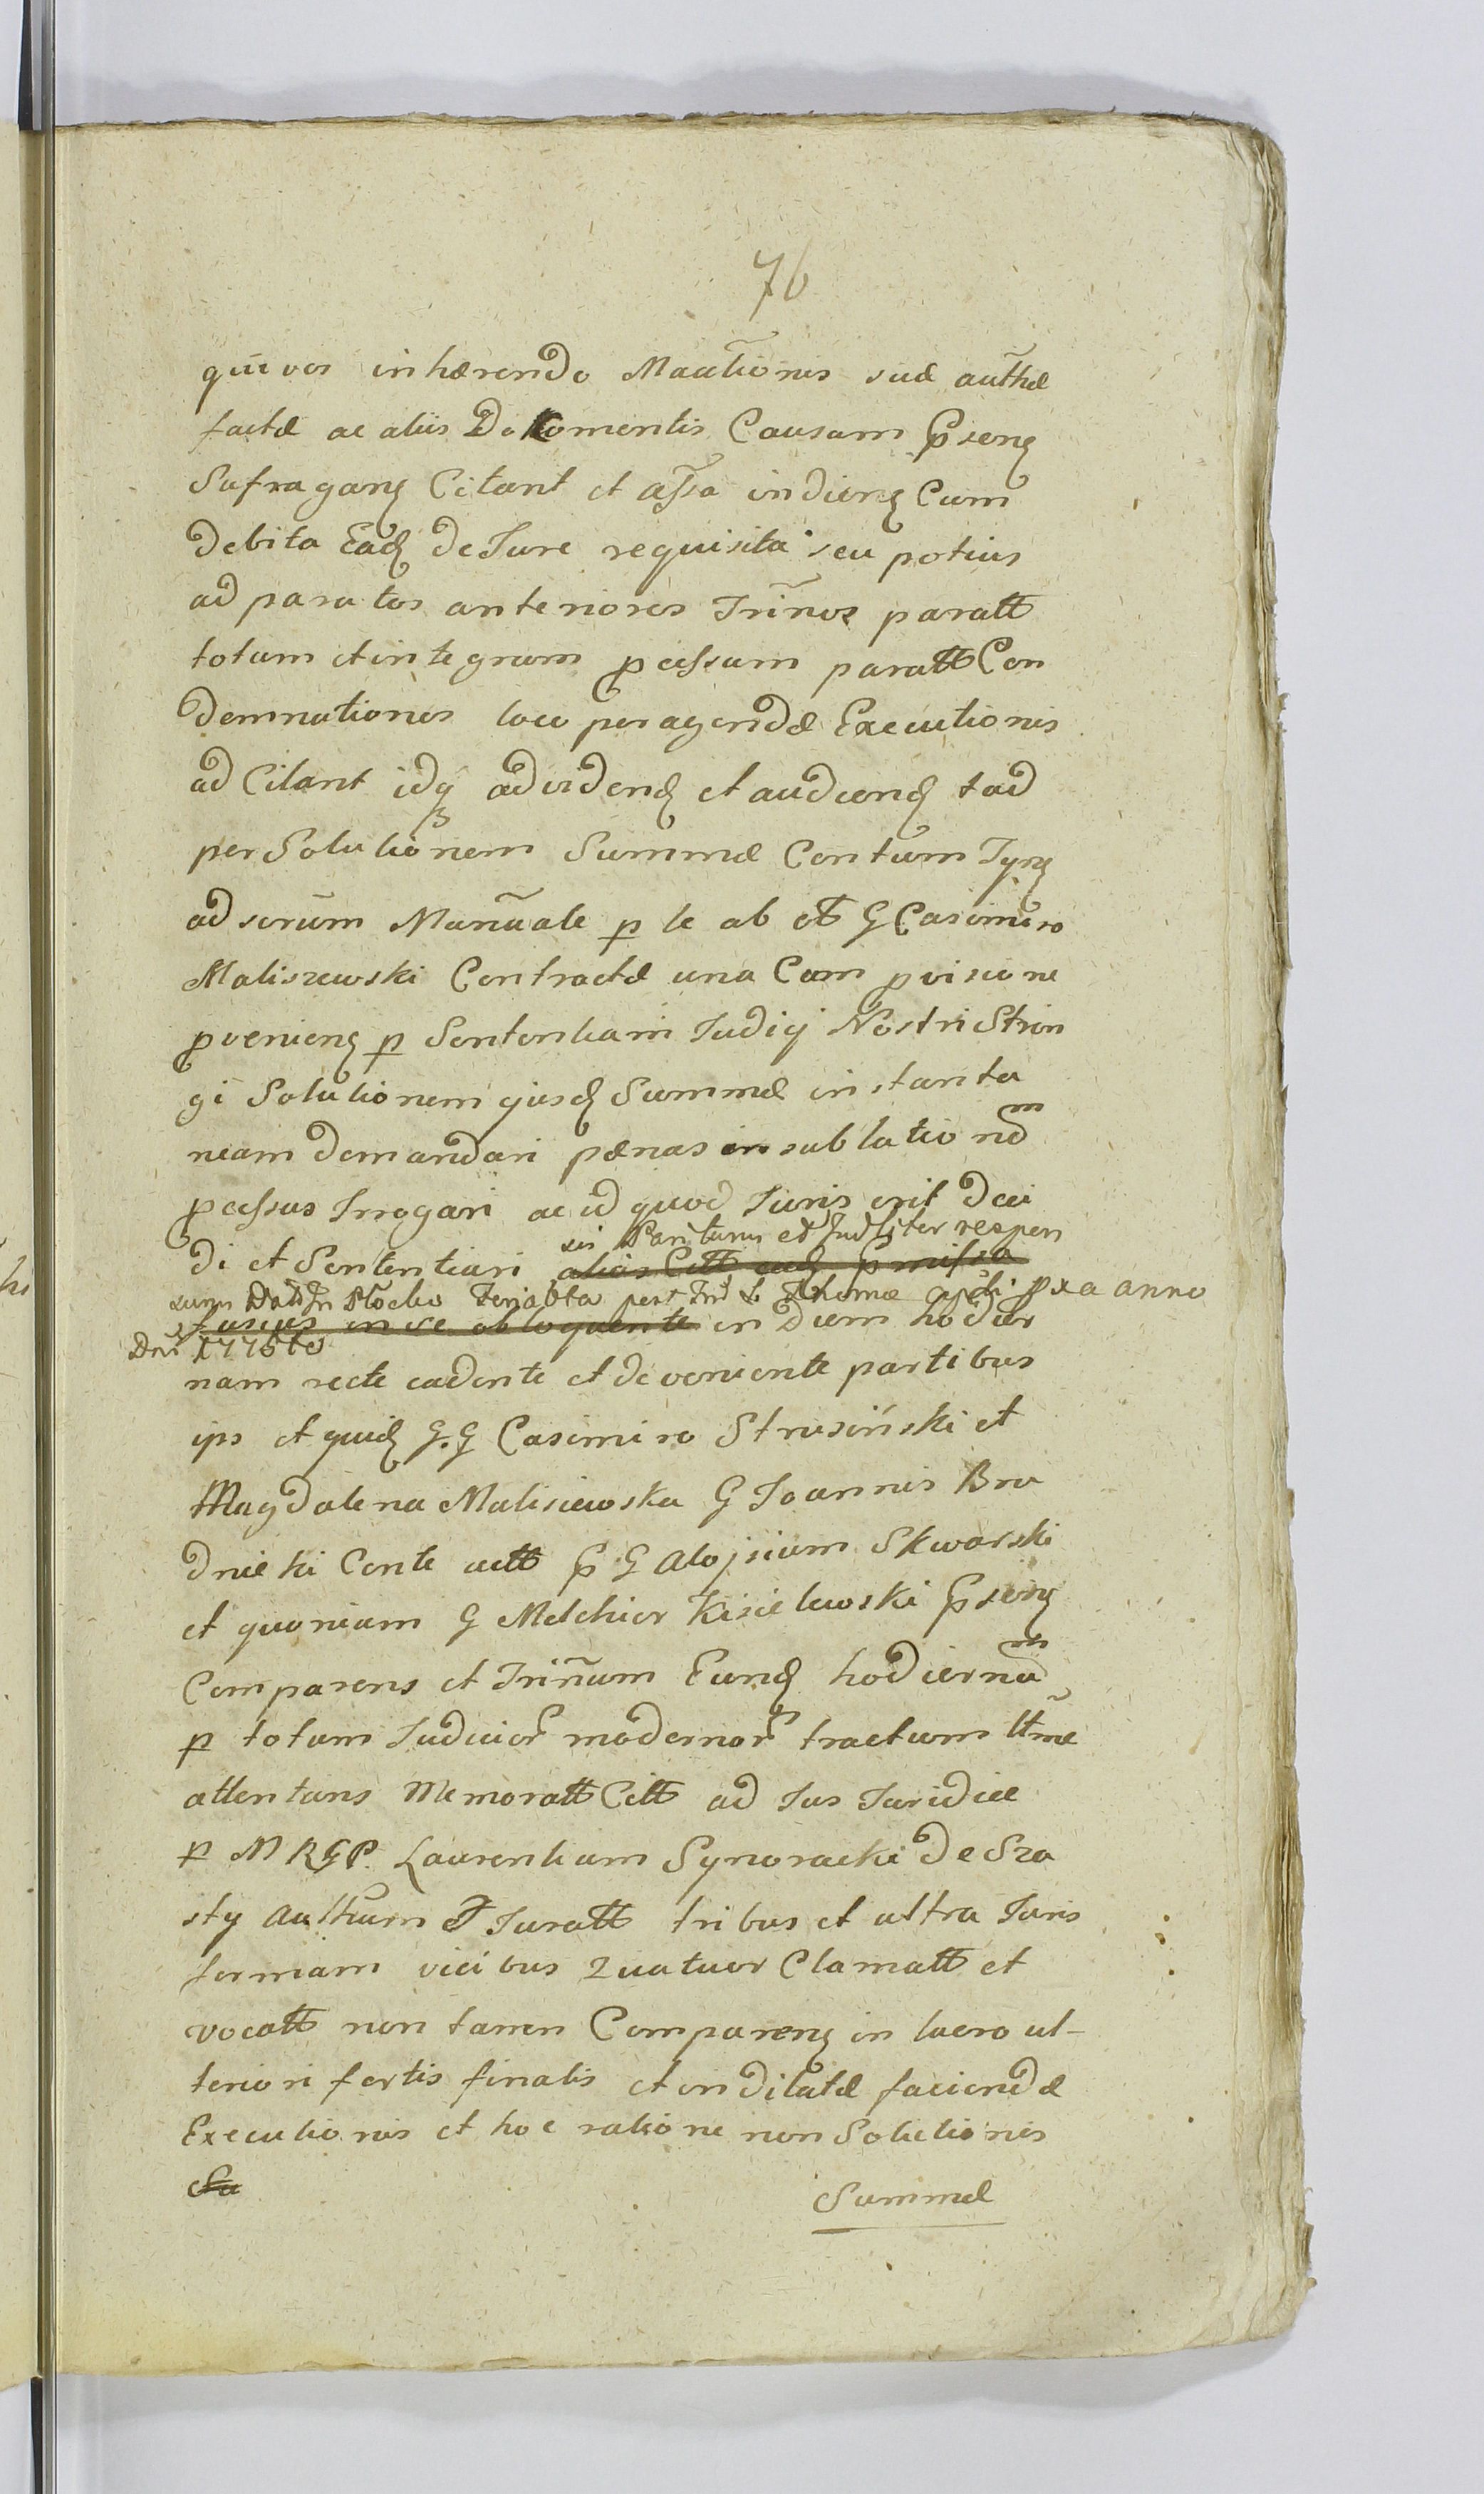 76
qui vos inhærendo Maãtionis suæ authæ
factæ ac aliis Dokomentis Causam Psenꝫ
Safraganꝫ Citant et assa indienꝫ Cum
debita Eadꝫ de Iure requisita seu potius
ad paratos anteriores Trinos paratt
totum et integrum pcessum paratt Con
demnationes loco peragendæ Executionis
ad Citant idq ad videndꝫ et audiendꝫ tad
per Solutionem Summæ Centum Tynꝫ
ad serūm Manuale p te ab G Casimiro
Maliszewski Contractæ una Cum pvisione
pvenienꝫ p Sententiam Iudicij Nostri Strin
gi Solutionem ejusdꝫ Summæ instanta
neam demandari pænas in sublationem
pcessus Irrogari ac id quod Iuris erit deci
sis Pariturus et Iudliter respon
di et Sententiari alias Citt eadꝫ Pmissa
surus Datt In Płocko Feria 6ta post Fest S Thomæ apli pxa anno
fusius in se obloquente in Diem hodier
Dni 1775to
nam recte cadente et de veniente partibus
ips et quidꝫ G.G Casimiro Strusiński et
Magdalena Malisiewska G Joannis Bro
dnicki Conte actt p G Alojsium Skwarski
et quoniam G Melchior Kisielewski Psenꝫ
Comparens et Trinum Eundꝫ hodiernum
p totum Iudicior modernor tractum ltme
attentans Memoratt Citt ad Ius Iuridice
p M RGP. Laurentium Synoracki De Sza
sty Authum Juratt tribus et ultra Iuris
formam vicibus Quatuor Clamatt et
vocatt non tamen Comparenꝫ in lucro ul-
teriori fortis finalis et indilatæ faciendæ
Executionis et hoc ratione non Solutionis
Su
Summæ